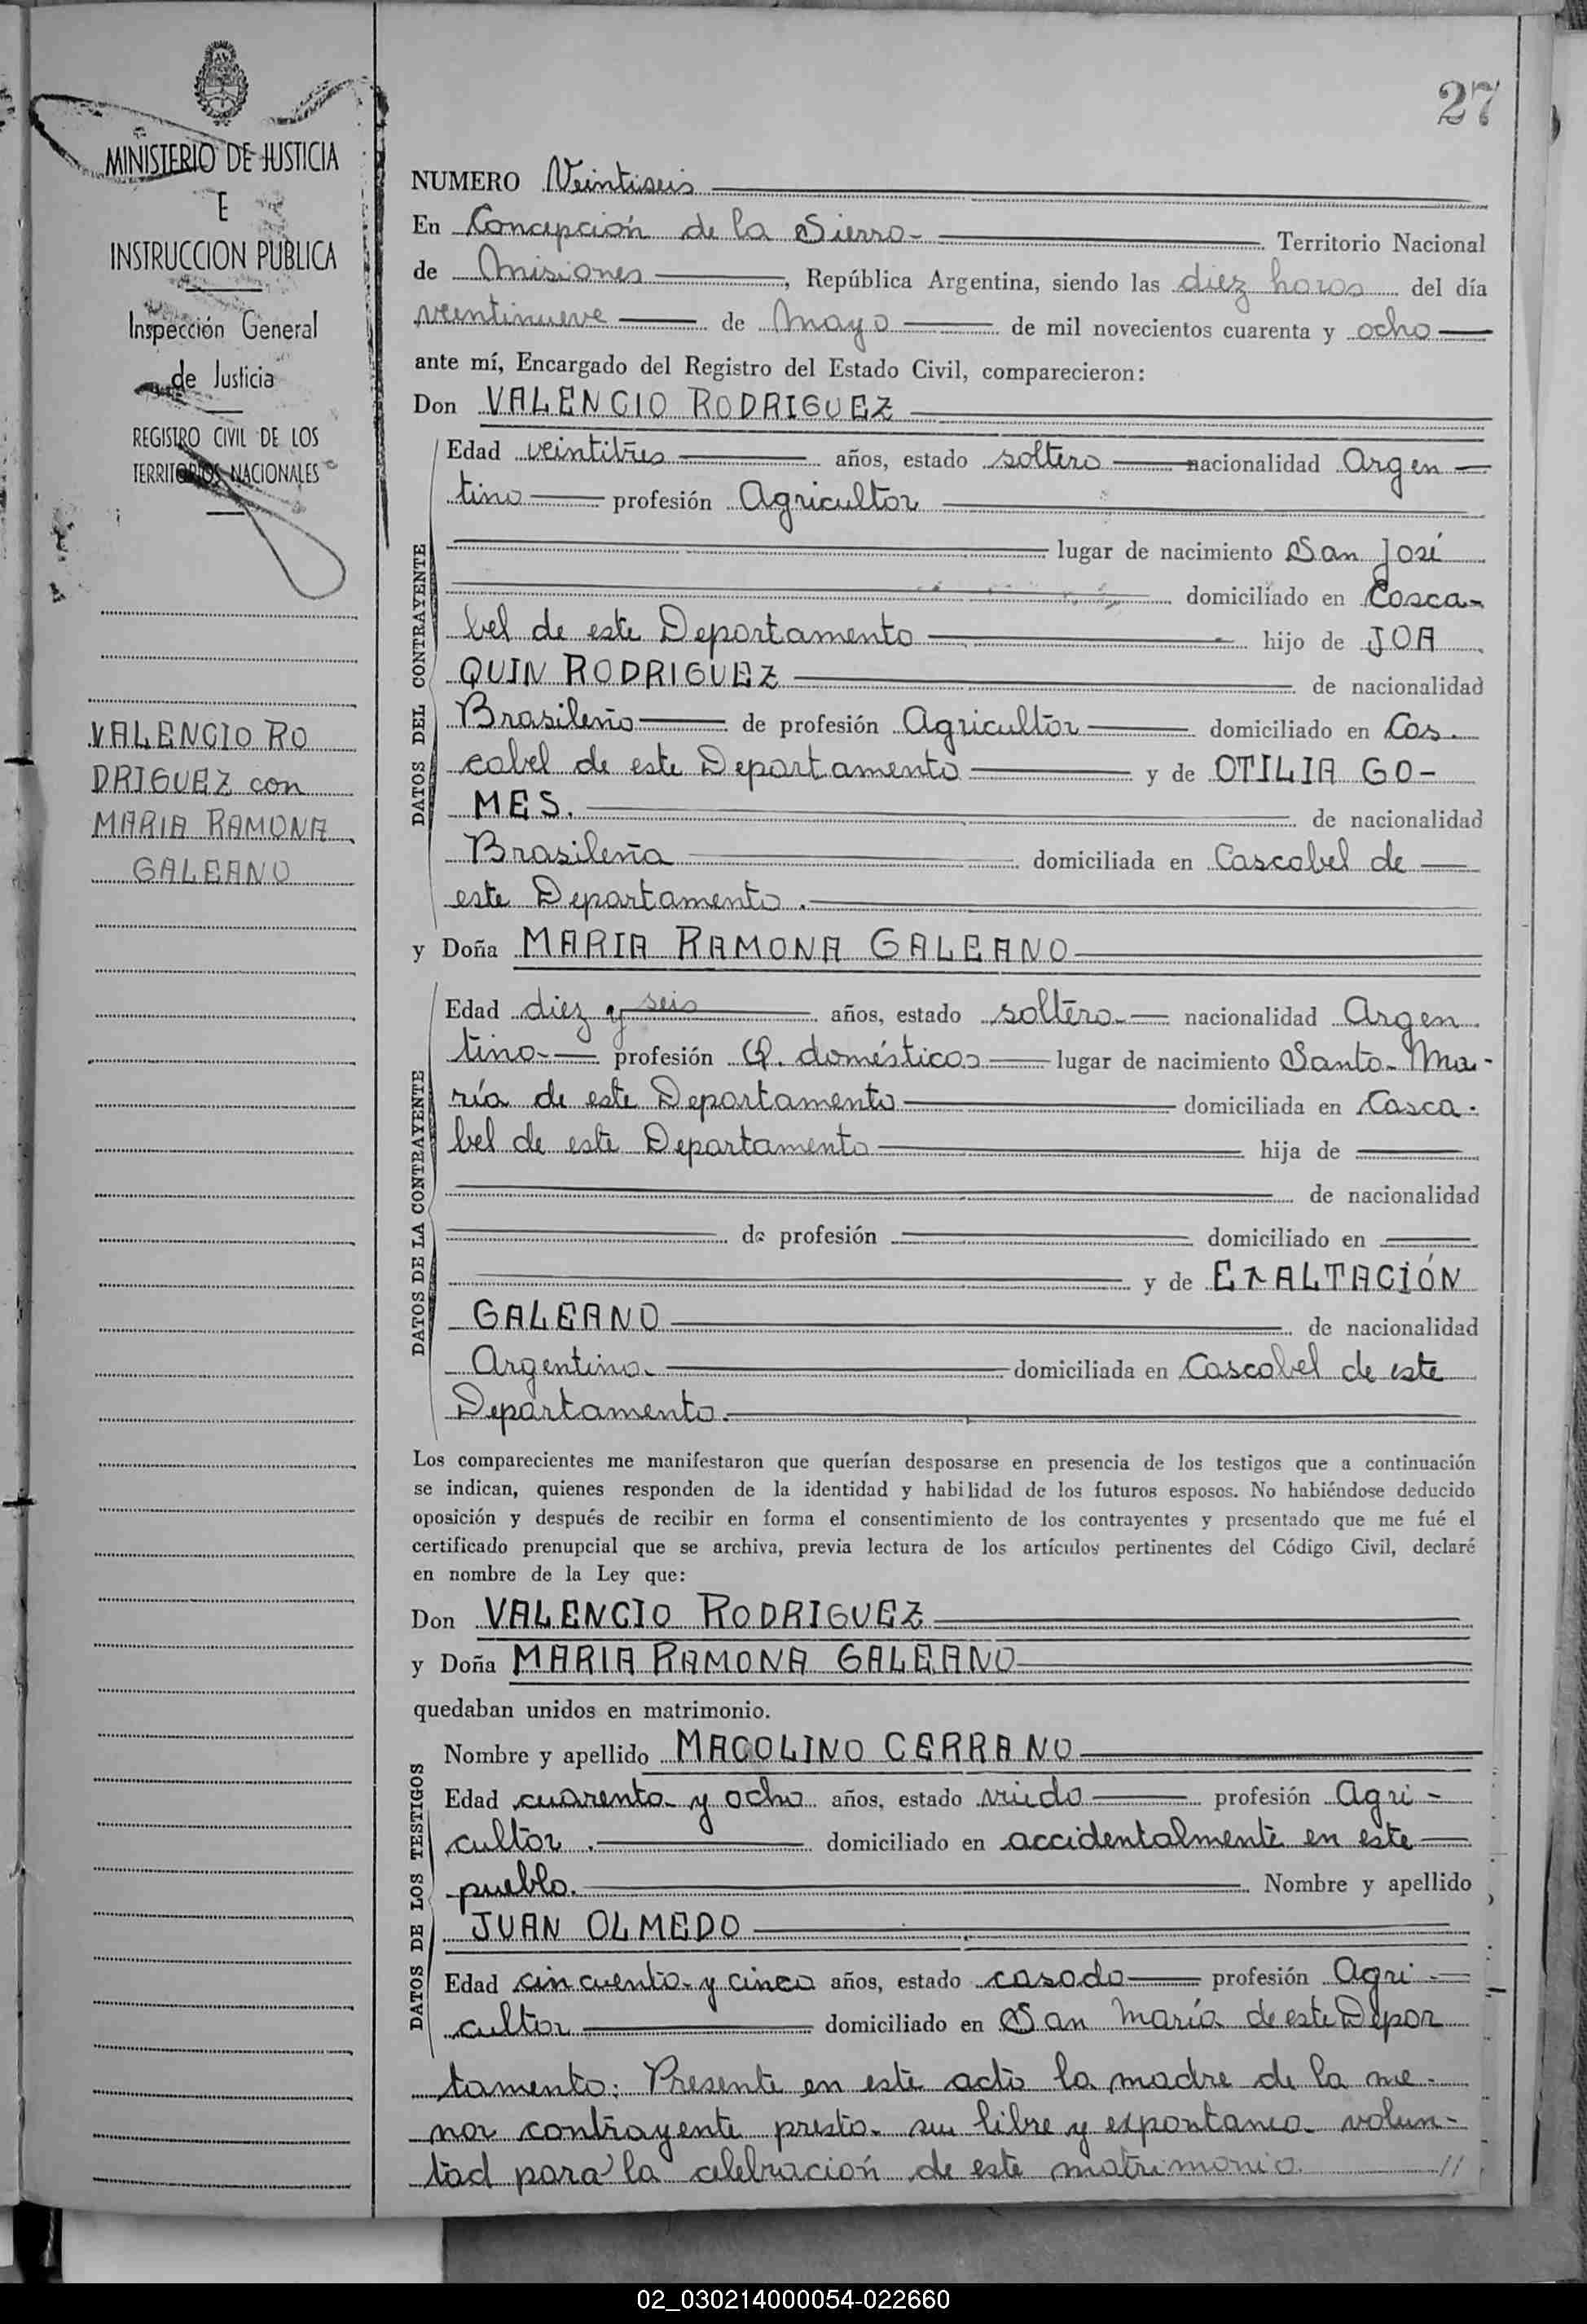 27
MINISTERIO DE JUSTICIA
E
INSTRUCCION PUBLICA
Inspección General
de Justicia
REGISTRO CIVIL DE LOS
TERRITORIOS NACIONALES
VALENCIO RO
DRIGUEZ con
MARIA RAMONA
GALEANO
NUMERO Veintiseis
En Concepción de la Sierra Territorio Nacional
de Misiones, República Argentina, siendo las diez horas del día
veintinueve de Mayo de mil novecientos cuarenta y ocho
ante mí, Encargado del Registro del Estado Civil, comparecieron:
Don VALENCIO RODRIGUEZ
DATOS DEL CONTRAYENTE
Edad veintitres años, estado soltero nacionalidad Argen
tino profesión Agricultor
lugar de nacimiento San José
domiciliado en Casca-
bel de este Departamento hijo de JOA
QUIN RODRIGUEZ de nacionalidad
Brasileño de profesión Agricultor domiciliado en Cas.
cabel de este Departamento y de OTILIA GO-
MES. de nacionalidad
Brasileña domiciliada en Cascabel de
este Departamento.
y Doña MARIA RAMONA GALEANO
DATOS DE LA CONTRAYENTE
Edad diez y seis años, estado soltera nacionalidad Argen
tina profesión Q. domésticos lugar de nacimiento Santa Ma-
ría de este Departamento domiciliada en Casca.
bel de este Departamento hija de
de nacionalidad
de profesión domiciliado en
y de EXALTACIÓN
GALEANO de nacionalidad
Argentina domiciliada en Cascabel de este
Departamento.
Los comparecientes me manifestaron que querían desposarse en presencia de los testigos que a continuación
se indican, quienes responden de la identidad y habilidad de los futuros esposos. No habiéndose deducido
oposición y después de recibir en forma el consentimiento de los contrayentes y presentado que me fué el
certificado prenupcial que se archiva, previa lectura de los artículos pertinentes del Código Civil, declaré
en nombre de la Ley que:
Don VALENCIO RODRIGUEZ
y Doña MARIA RAMONA GALEANO
quedaban unidos en matrimonio.
DATOS DE LOS TESTIGOS
Nombre y apellido MACOLINO CERRANO
Edad cuarenta y ocho años, estado viudo profesión Agri-
cultor. domiciliado en accidentalmente en este
pueblo. Nombre y apellido
JUAN OLMEDO
Edad cincuenta y cinco años, estado casado profesión Agri-
cultor domiciliado en San María de este Depar
tamento: Presente en este acto la madre de la me-
nor contrayente presta su libre y expontanea volun-
tad para la celebración de este matrimonio. //
02_030214000054-022660